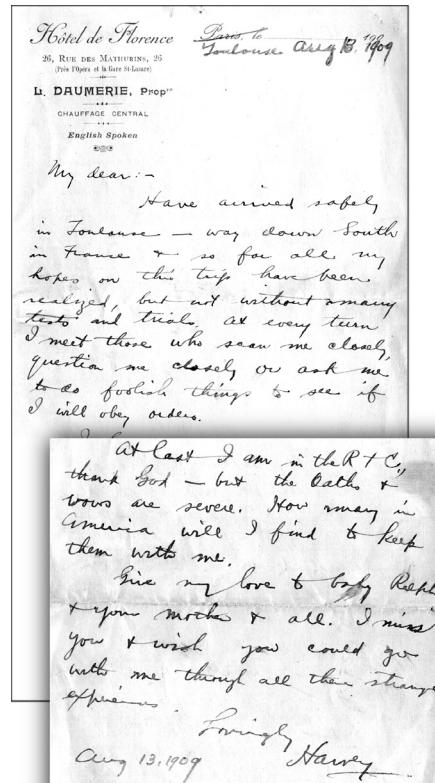 Hôtel de Florence
26, RUE DES MATHURINS, 26
(Près l'Opéra et la Gare St-Lazare)
L. DAUMERIE, Propre
CHAUFFAGE CENTRAL
English Spoken
Paris, le 190
Toulouse Aug 13. 1909
My dear:-
Have arrived safely
in Toulouse — way down South
in France & so far all my
hopes on this trip have been
realized, but not without many
tests and trials. At every turn
I meet those who scan me closely,
question me closely or ask me
to do foolish things to see if
I will obey orders.
At last I am in the R + C.,
thank God — but the Oaths &
vows are severe. How many in
America will I find to keep
them with me.
Give my love to baby Ralph
& your mother & all. I miss
you & wish you could go
with me through all these strange
experiences.
Lovingly
Harvey
Aug 13, 1909